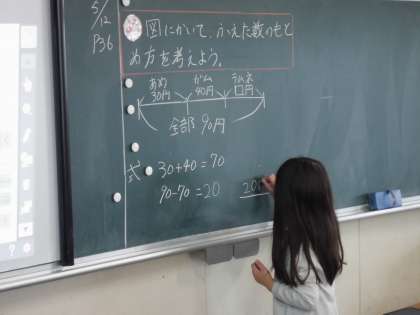 5/12
P36
図にかいて、ふえた数のもと
め方を考えよう。
あめ ガム ラムネ
30円 40円 □円
全部 90円
式 30+40=70
90-70=20 20